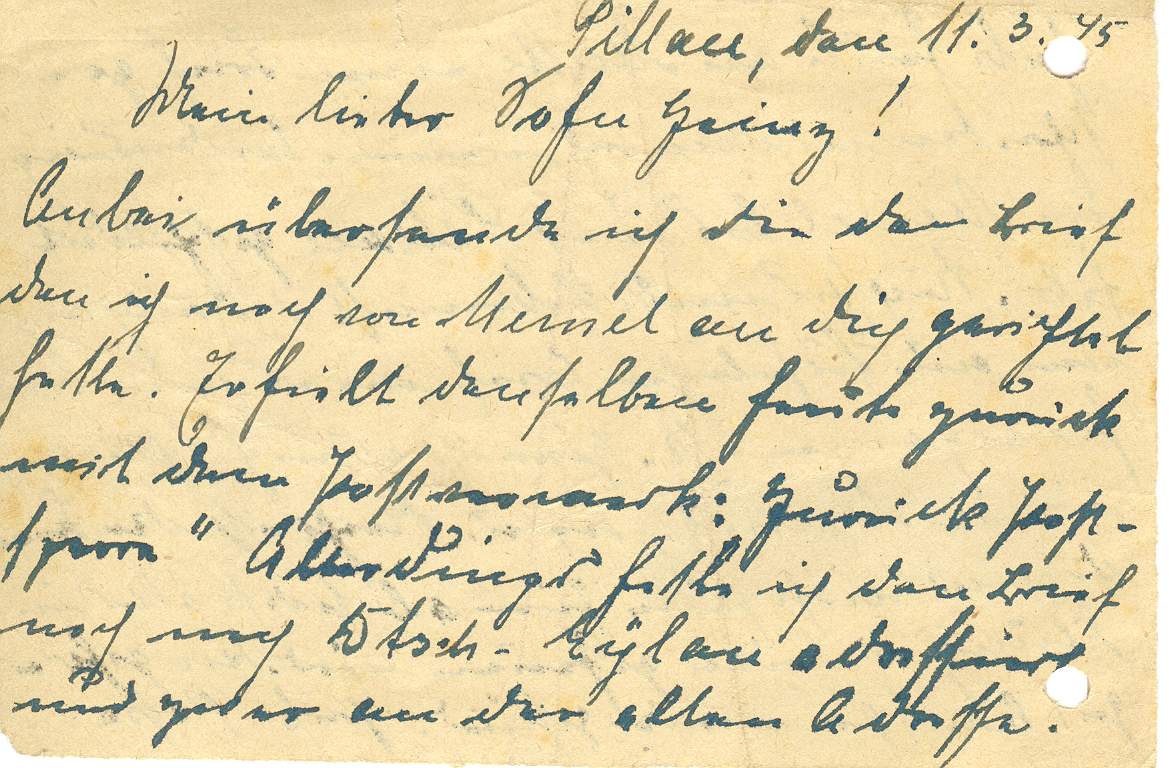 Pillau, den 11. 3. 45
Mein lieber Sohn Heinz!
Anbei übersende ich die den Brief
den ich noch von Memel an dich gerichtet
hatte. Erhielt denselben heute zurück
mit dem Postvermerk: Zurück Post-
sperre" Allerdings hatte ich den Brief
noch nach Dtsch-Eylau adressiert
und zwar an der alten Adresse.